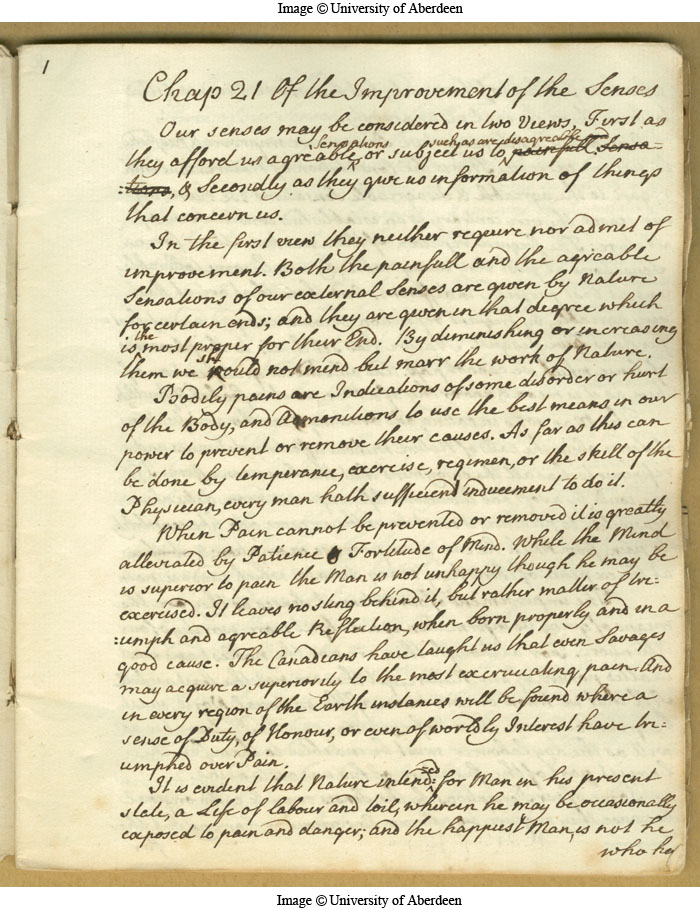 Image © University of Aberdeen
1
Chap 21 Of the Improvement of the Senses
Our senses may be considered in two Views, First as
Sensations such as are disagreable
they afford us agreable, or subject us to painfull Sensa-
-tions, & Secondly as they give us information of things
that concern us.
In the first view they neither require nor admit of
improvement. Both the painfull and the agreable
Sensations of our external Senses are given by Nature
for certain ends; and they are given in that degree which
the
is most proper for their End. By diminishing or increasing
shd
them we would not mend but marr the work of Nature.
Bodily pains are Indications of some disorder or hurt
of the Body, and Admonitions to use the best means in our
power to prevent or remove their causes. As far as this can
be done by temperance, exercise, regimen, or the skill of the
Physician, every man hath sufficient inducement to do it.
When Pain cannot be prevented or removed it is greatly
alleviated by Patience & Fortitude of Mind. While the Mind
is superior to pain the Man is not unhappy though he may be
exercised. It leaves no sting behind it, but rather matter of tri=
:umph and agreable Reflection, when born properly and in a
good cause. The Canadians have taught us that even Savages
may acquire a superiority to the most excruciating pain. And
in every region of the Earth instances will be found where a
sense of Duty, of Honour, or even of worldly Interest have tri=
umphed over Pain.
ed
It is evident that Nature intend: for Man in his present
state, a Life of labour and toil, wherein he may be occasionally
exposed to pain and danger; and the happiest Man, is not he
who has
Image © University of Aberdeen